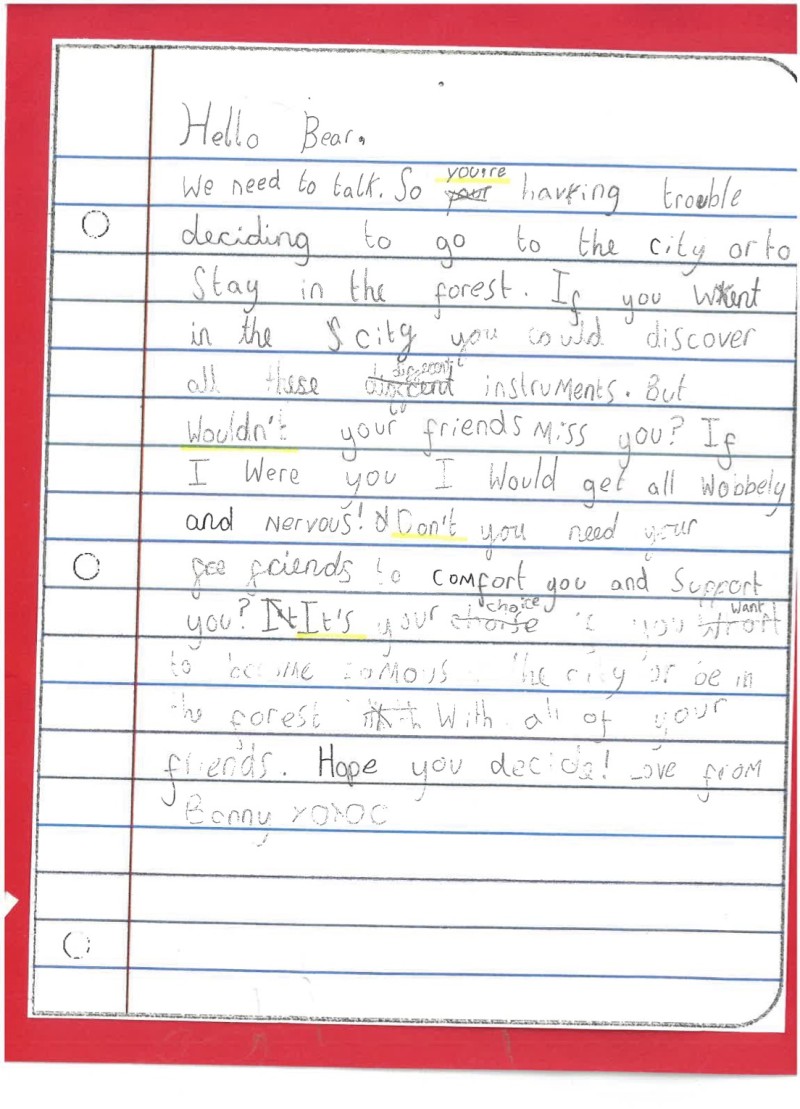 Hello Bear,
We need to talk. So you're having trouble
deciding to go to the city or to
Stay in the forest. If you went
in the city you could discover
all these different instruments. But
Wouldn't your friends Miss you? If
I Were you I Would get all wobbely
and nervous! Don't you need your
friends to comfort you and Support
you? It's your choice if you want
to become famous the city or be in
the forest With all of your
friends. Hope you decide! Love from
Bonny XOXOC